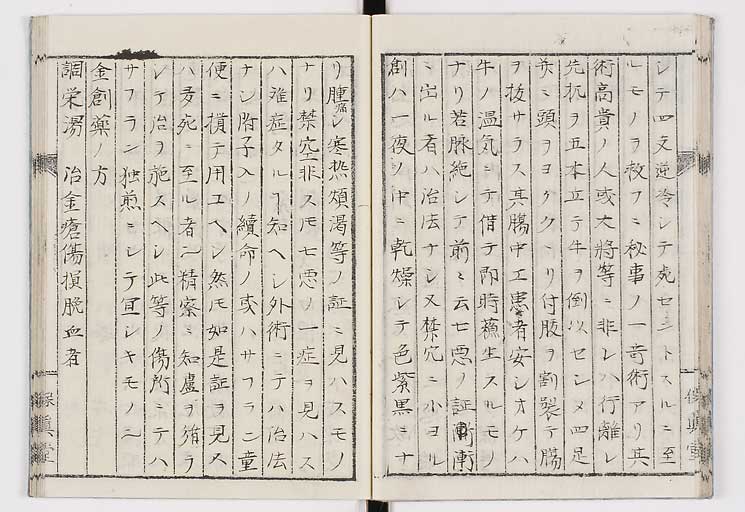 シテ四支逆冷シテ死セントスルニ至
ルモノヲ救フニ秘事ノ一奇術アリ其
術高貴ノ人或大将等ニ非レハ行離シ
先杭ヲ五本立テ牛ヲ倒以センメ四足
并ニ頭ヲヨククヽリ付腹ヲ割裂テ腸
ヲ抜サラス其腸中エ患者安シオケハ
牛ノ温気ニテ借テ即時蘓生スルモノ
ナリ若脉絶シテ前ニ云七悪ノ証漸漸
ニ出ル者ハ治法ナシ又禁穴ニ小ヨル
創ハ一夜ノ中ニ乾燥シテ色紫黒ニナ
リ腫痛シ寒热煩渇等ノ証ニ見ハスモノ
ナリ禁穴非スモ七悪ノ一症ヲ見ハス
ハ難症タルヿ知ヘシ外術ニテハ治法
ナシ附子入ノ續命ノ或ハサフランニ童
便ニ横テ用エヘシ然モ如是証ヲ見ス
ハ多死ニ至ル者ニ精察ニ知虚ヲ狥テ
シテ治ヲ施スヘシ此等ノ傷所ニテハ
サフラン独煎ニシテ宜シキモノニ
金創藥ノ方
調栄湯 治金瘡傷損脱血者
保眞堂
保眞堂